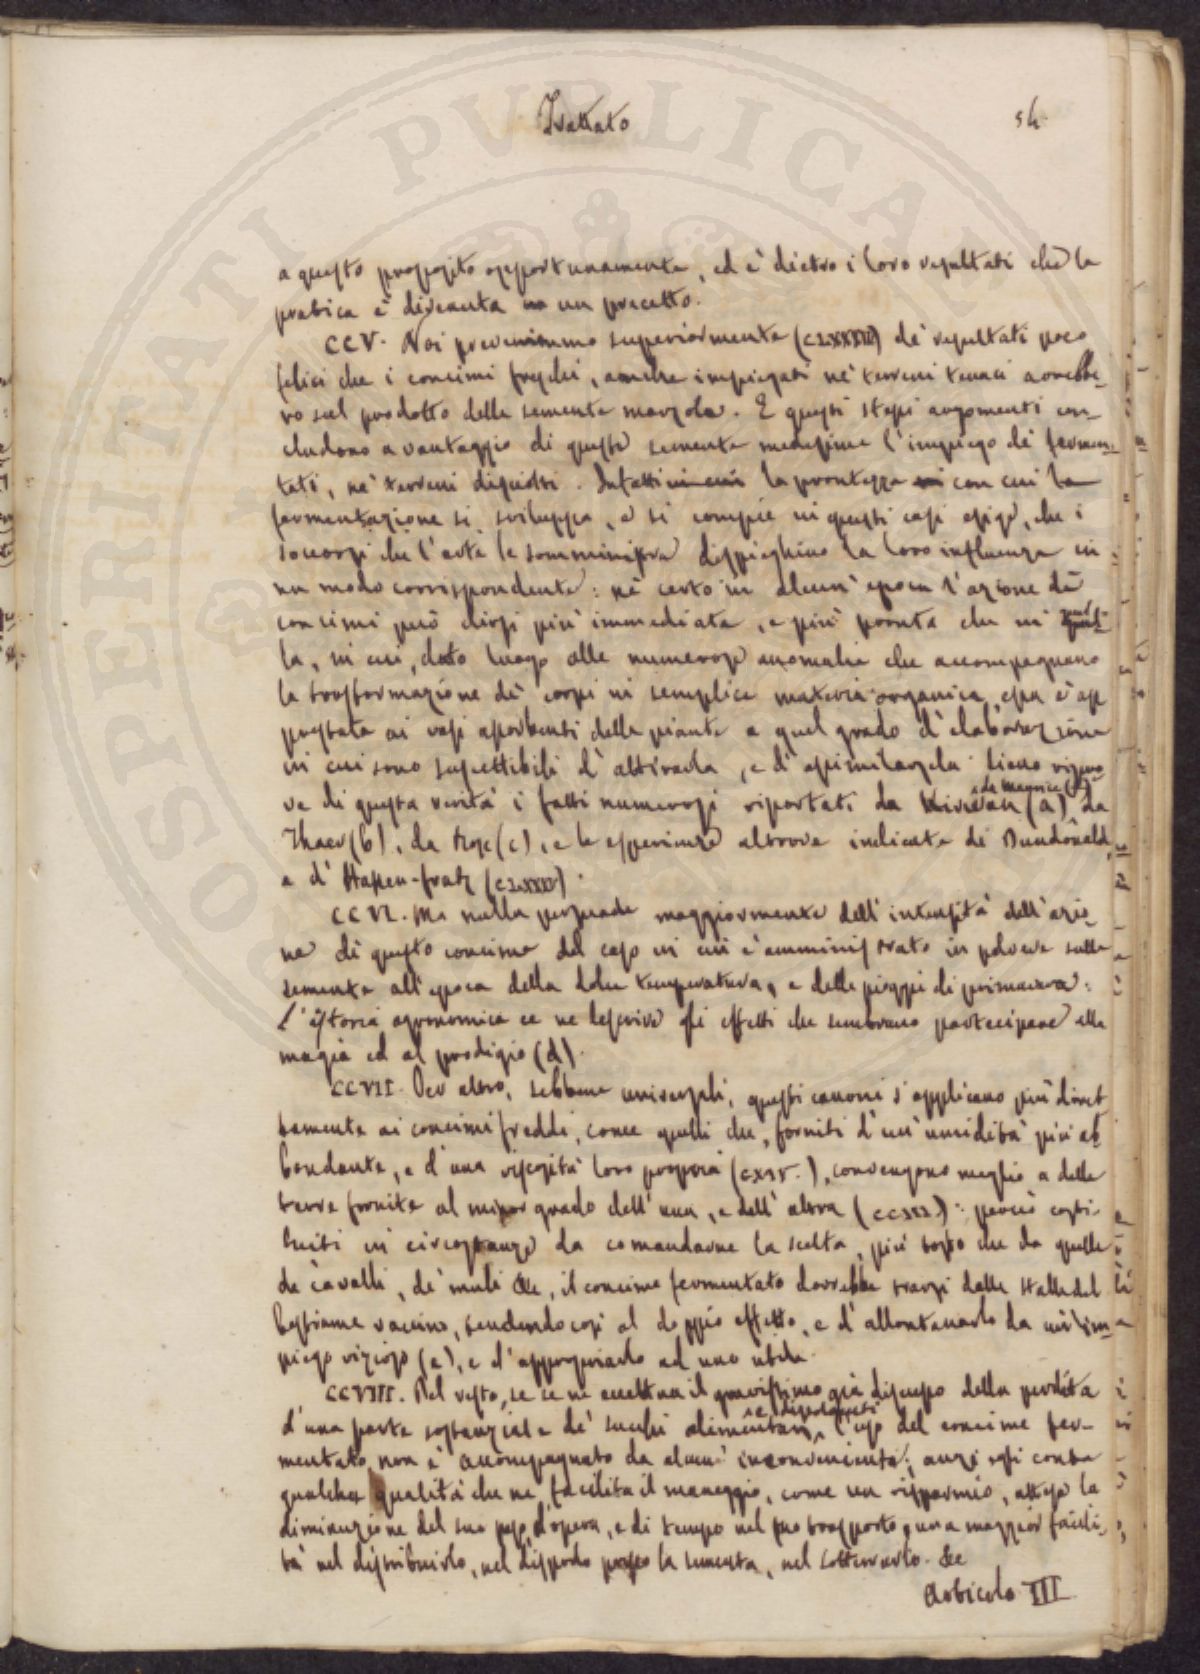 Trattato 54
a questo proposito opportunamente, ed è dietro i loro resultati che la
pratica è divenuta un precetto.
CCV. Noi prevenimmo superiormente (CLXXXII) de' resultati poco
felici che i concimi freschi, anche impiegati ne' terreni tenaci avrebbe-
ro sul prodotto delle sementa marzola. E questi stessi argomenti con-
cludono a vantaggio di queste sementa medesime l'impiego de' fermen-
tati, ne' terreni disciolti. Infatti la prontezza con cui la
fermentazione si sviluppa, e si compie in questi casi esige, che i
soccorsi che l'arte le somministra dispieghino la loro influenza in
un modo corrispondente: nè certo in alcun' epoca l'azione de'
concimi può dirsi più immediata, e più pronta che in quel-
la, in cui, dato luogo alle numerose anomalie che accompagnano
la trasformazione de' corpi in semplice materia organica, essa è ap
prestata ai vasi assorbenti delle piante a quel grado d'elaborazione
in cui sono suscettibili d'attirarla, e d'assimilarsela.
ve di questa verità i fatti numerosi riportati da Kirwan (a) da
Thaer (b), da (c), e le esperienze altrove indicate di Dundonald,
e d' Hassen-fratz (CLXXXV).
CCVI. Ma nulla persuade maggiormente dell' intensità dell' azio-
ne di questo concime del caso in cui è amministrato in polvere sulle
sementa all' epoca della dolce temperatura, e delle piogge di primavera:
l' istoria agronomica ce ne descrive gli effetti che sembrano partecipare alla
magia ed al prodigio (d).
CCVII. Per altro, sebbene universali, questi canoni s'applicano più diret
tamente ai concimi freddi, come quelli che, forniti d'un' umidità più ab
bondante, e d'una viscosità loro propria (CXIV.), convengono meglio a delle
terre fornite al minor grado dell' una, e dell' altra: perciò costi-
tuiti in circostanze da comandarne la scelta, più tosto che da quelle
de' cavalli, de' muli &c, il concime fermentato dovrebbe trarsi dalle stalle del
bestiame vaccino, tendendo così al doppio effetto, e d'allontanarlo da un im-
piego vizioso (e), e d'appropriarlo ad uno utile.
CCVIII. Del resto, se se ne eccettua il gravissimo già discusso della perdita
d'una parte sostanziale de' succhi alimentari, l'uso del concime fer-
mentato non è accompagnato da alcun' inconveniente; anzi esso conta
qualche qualità che ne facilita il maneggio, come un risparmio, attesa la
diminuzione del suo peso, d'opera, e di tempo nel suo trasporto, una maggior facili-
tà nel distribuirlo, nel disporlo presso la sementa, nel sotterrarlo. &c
Articolo III